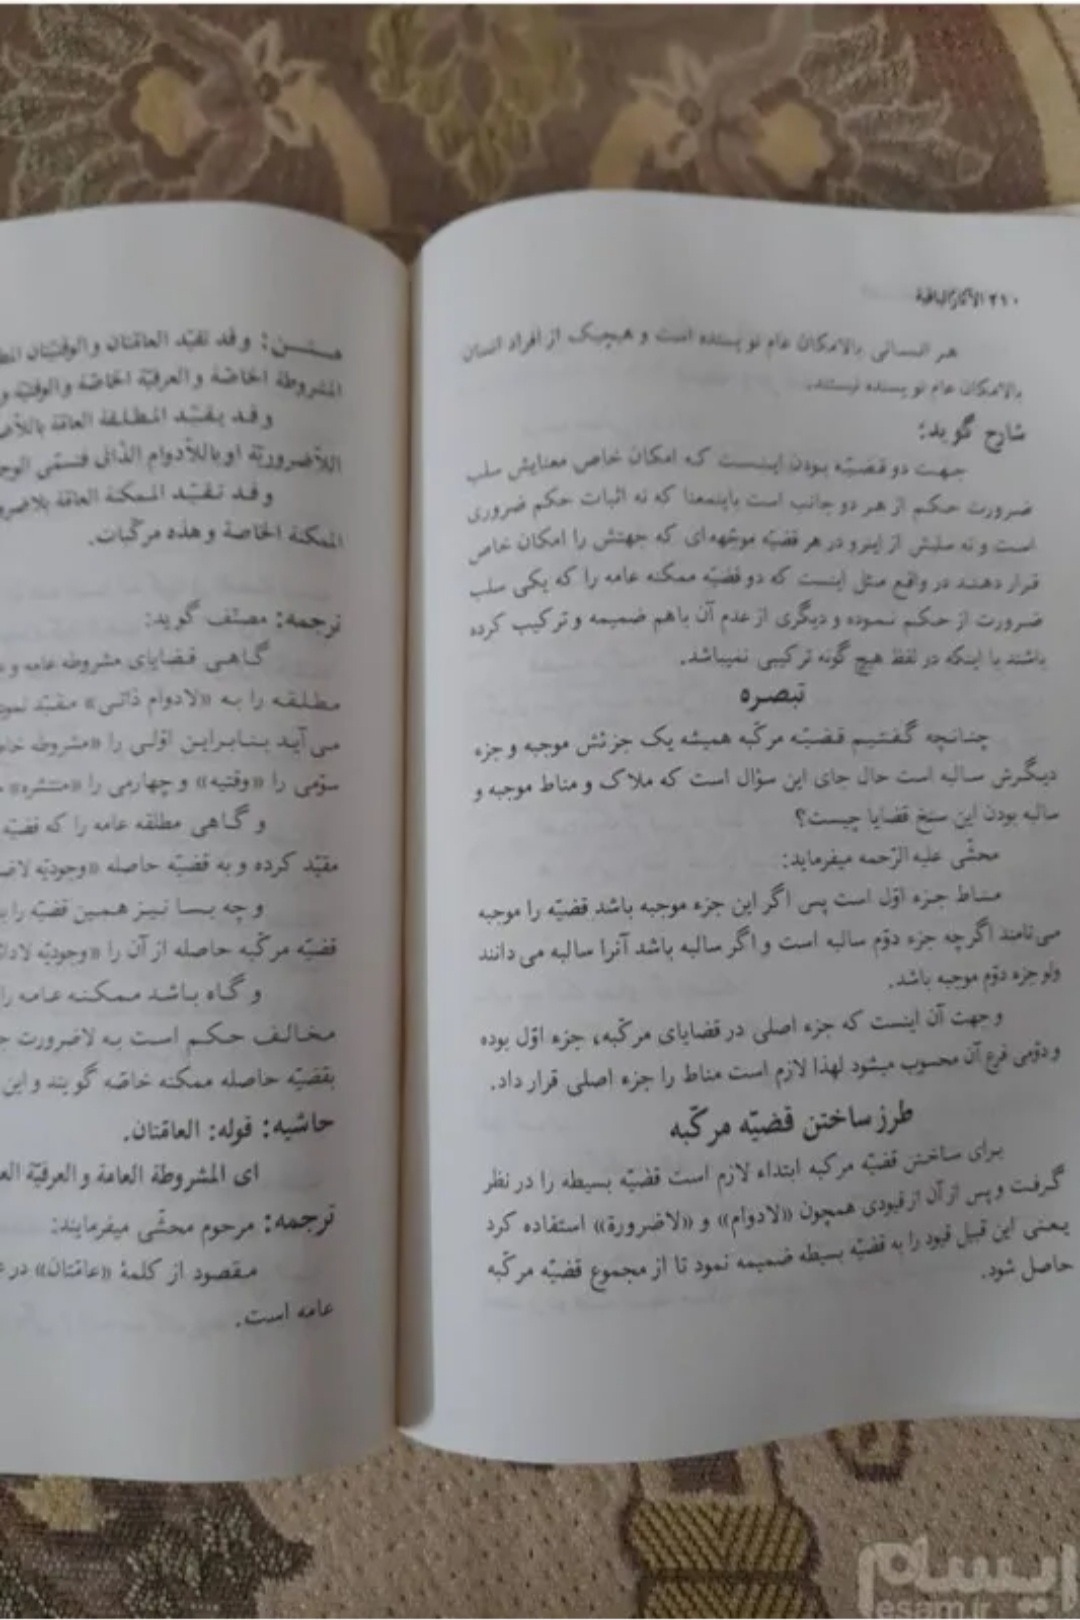 ۲۱۰ الآثار الباقیة
هر انسانی بالامکان عام نویسنده است و هیچیک از افراد انسان
بالامکان عام نویسنده نیستند.
شارح گوید:
جهت دو قضیّه بودن اینست که امکان خاص معنایش سلب
ضرورت حکم از هر دو جانب است باینمعنا که نه اثبات حکم ضروری
است و نه سلبش از اینرو در هر قضیّه موجّهه‌ای که جهتش را امکان خاص
قرار دهند در واقع مثل اینست که دو قضیّه ممکنه عامه را که یکی سلب
ضرورت از حکم نموده و دیگری از عدم آن باهم ضمیمه و ترکیب کرده
باشند با اینکه در لفظ هیچ گونه ترکیبی نمیباشد.
تبصره
چنانچه گفتیم قضیّه مرکّبه همیشه یک جزئش موجبه و جزء
دیگرش سالبه است حال جای این سؤال است که ملاک و مناط موجبه و
سالبه بودن این سنخ قضایا چیست؟
محشّی علیه الرّحمه میفرماید:
مناط جزء اوّل است پس اگر این جزء موجبه باشد قضیّه را موجبه
می‌نامند اگرچه جزء دوّم سالبه است و اگر سالبه باشد آنرا سالبه می‌دانند
ولو جزء دوّم موجبه باشد.
وجهت آن اینست که جزء اصلی در قضایای مرکّبه، جزء اوّل بوده
و دوّمی فرع آن محسوب میشود لهذا لازم است مناط را جزء اصلی قرار داد.
طرز ساختن قضیّه مرکّبه
برای ساختن قضیّه مرکبه ابتداء لازم است قضیّه بسیطه را در نظر
گرفت و پس از آن از قیودی همچون «لادوام» و «لاضرورة» استفاده کرد
یعنی این قبیل قیود را به قضیّه بسیطه ضمیمه نمود تا از مجموع قضیّه مرکّبه
حاصل شود.
متن: وقد تقیّد العامّتان والوقتیّتان
المشروطة الخاصّة والعرفیّة الخاصّة والوقتیّة و
وقد یقیّد المطلقة العامّة
اللاّضروریّة او باللاّدوام الذّاتی فتسمّی
وقد تقیّد الممکنة العامّة
الممکنة الخاصة وهذه مرکّبات.
ترجمه: مصنّف گوید:
گاهی قضایای مشروطه عامه و
مطلقه را به «لادوام ذاتی» مقیّد
می‌آید بنابراین اوّلی را «مشروطه
سوّمی را «وقتیه» و چهارمی را «منتشره»
و گاهی مطلقه عامه را که قضیّه
مقیّد کرده و به قضیّه حاصله «وجودیّه
و چه بسا نیز همین قضیّه را
قضیّه مرکّبه حاصله از آن را «وجودیّه
و گاه باشد ممکنه عامه را
مخالف حکم است به لاضرورت
بقضیّه حاصله ممکنه خاصّه گویند و این
حاشیه: قوله: العامّتان.
ای المشروطة العامة و العرفیّة
ترجمه: مرحوم محشّی میفرمایند:
مقصود از کلمهٔ «عامّتان» در
عامه است.
ایسام
esam.ir